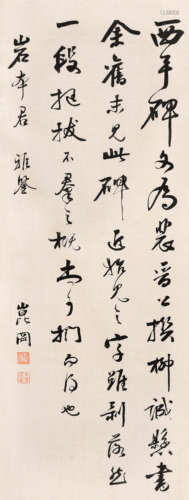 西平碑文为裴晋公撰柳诚悬书
余旧未见此碑近始见之字虽剥落然
一段挺拔不群之概尚可扪而得也
岩本君 雅鉴
崑冈